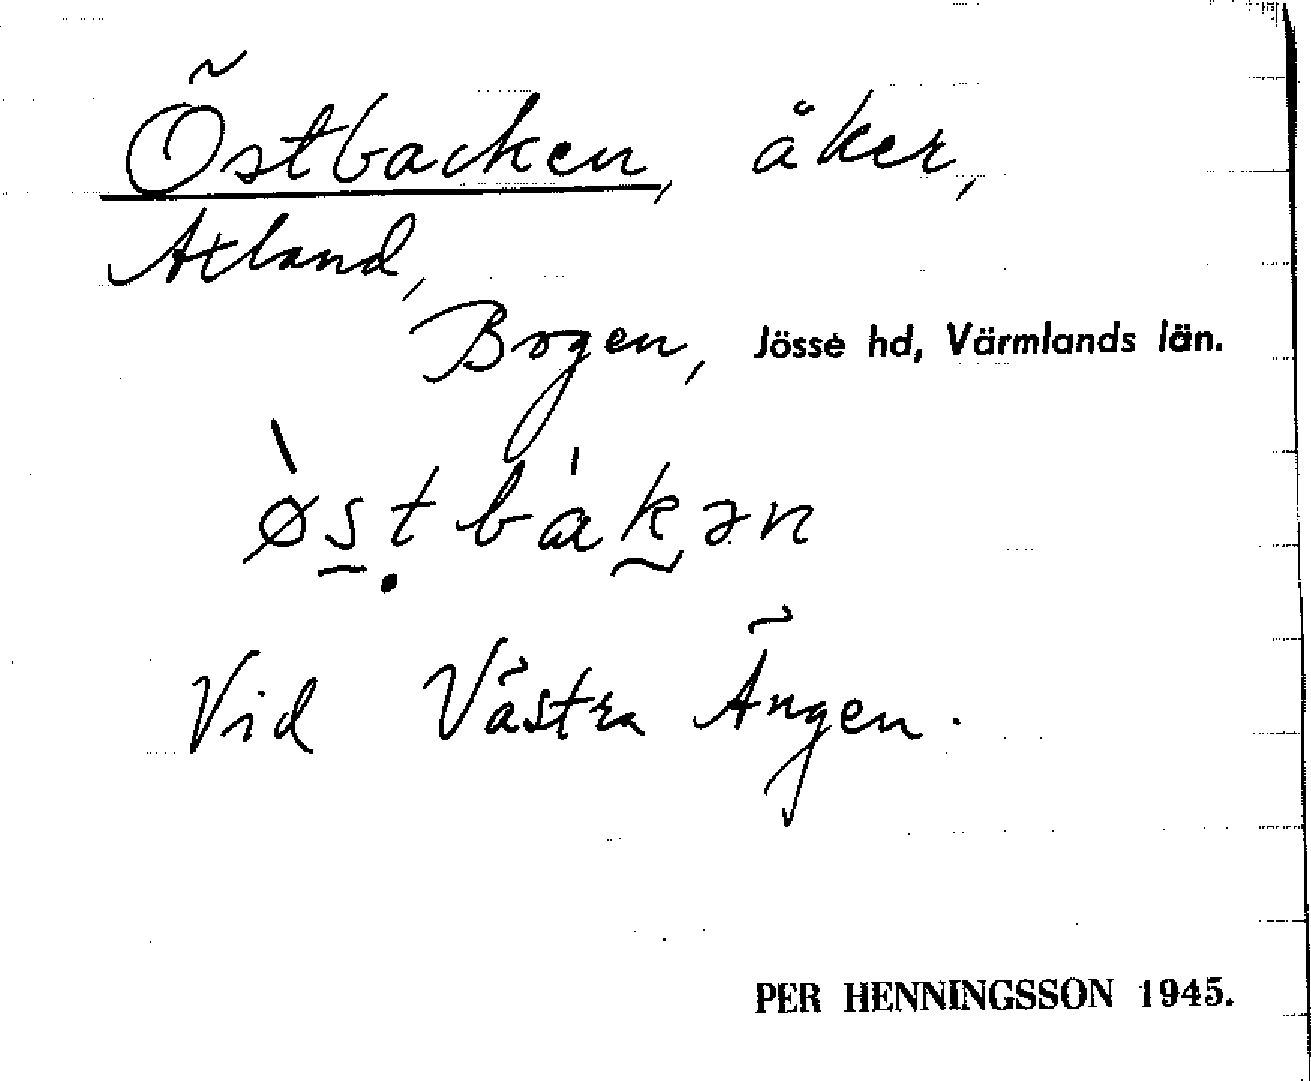 Östbacken, åker,
Atland,
Bogen, Jösse hd, Värmlands län.
ø̀stbákən
Vid Västra Ängen.
PER HENNINGSSON 1945.